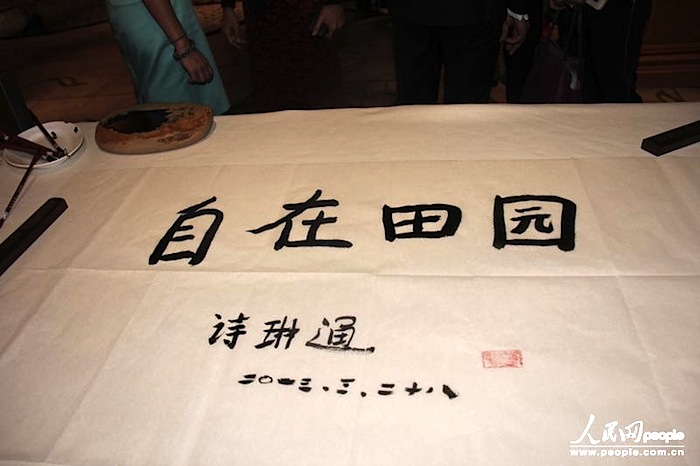 自在田园
诗琳通
二〇一三.三.二十八
人民网people
www.people.com.cn